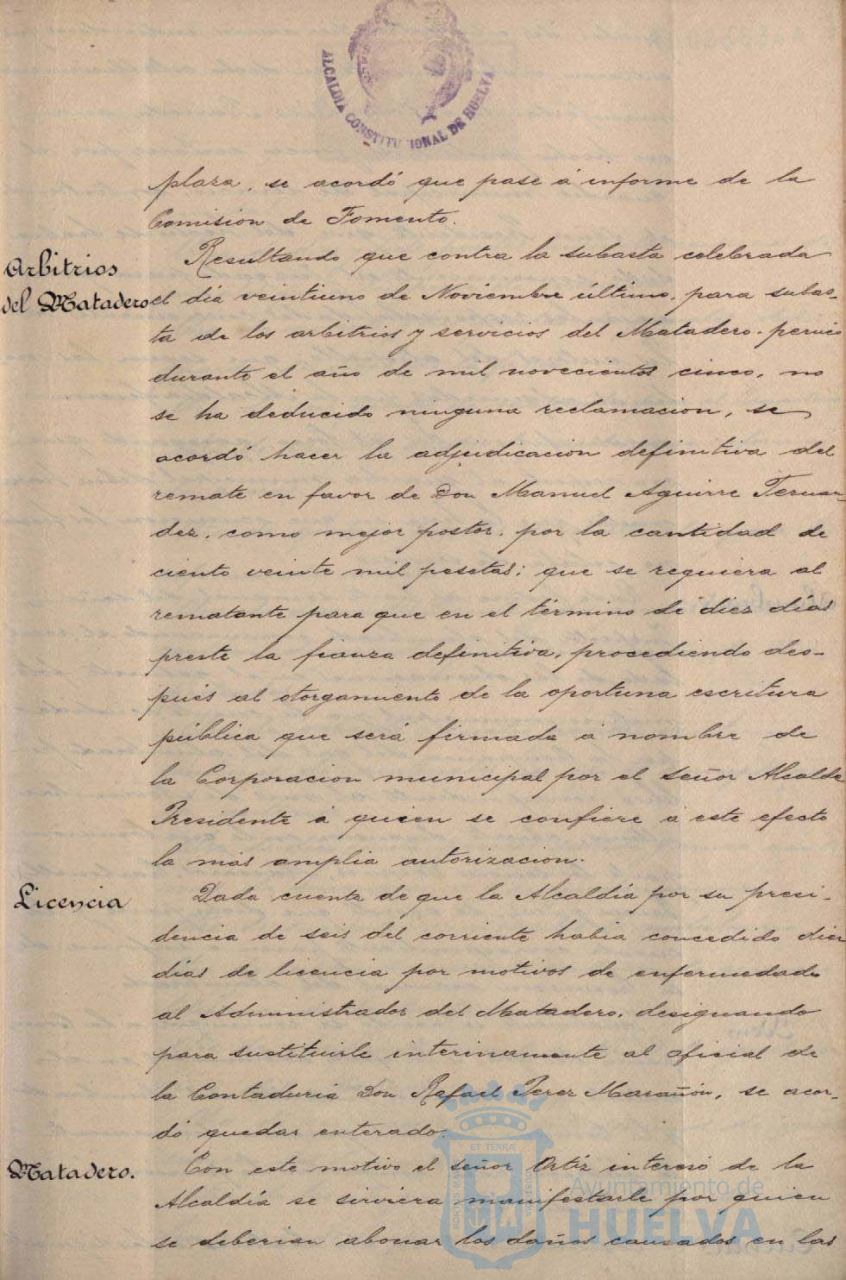 ALCALDÍA CONSTITUCIONAL DE HUELVA
plaza, se acordó que pase á informe de la
Comision de Fomento.
Arbitrios
del Matadero
Resultando que contra la subasta celebrada
el día veintiuno de Noviembre último, para subas-
ta de los arbitrios y servicios del Matadero
durante el año de mil novecientos cinco, no
se ha deducido ninguna reclamacion, se
acordó hacer la adjudicacion definitiva del
remate en favor de Don Manuel Aguirre Fernan-
dez, como mejor postor, por la cantidad de
ciento veinte mil pesetas; que se requiera al
rematante para que en el término de diez días
preste la fianza definitiva, procediendo des-
pués al otorgamiento de la oportuna escritura
pública que será firmada á nombre de
la Corporacion municipal por el señor Alcalde
Presidente á quien se confiere á este efecto
la más amplia autorizacion.
Licencia
Dada cuenta de que la Alcaldía por su presi-
dencia de seis del corriente habia concedido diez
días de licencia por motivos de enfermedad
al Administrador del Matadero, designando
para sustituirle interinamente al oficial de
la Contaduria Don Rafael Perez Marañón, se acor-
dó quedar enterado.
Matadero.
Con este motivo el señor Ortíz interesó de la
Alcaldía se sirviera manifestarle por quien
se deberian abonar los daños causados en las
ET TERRA
Ayuntamiento de
HUELVA